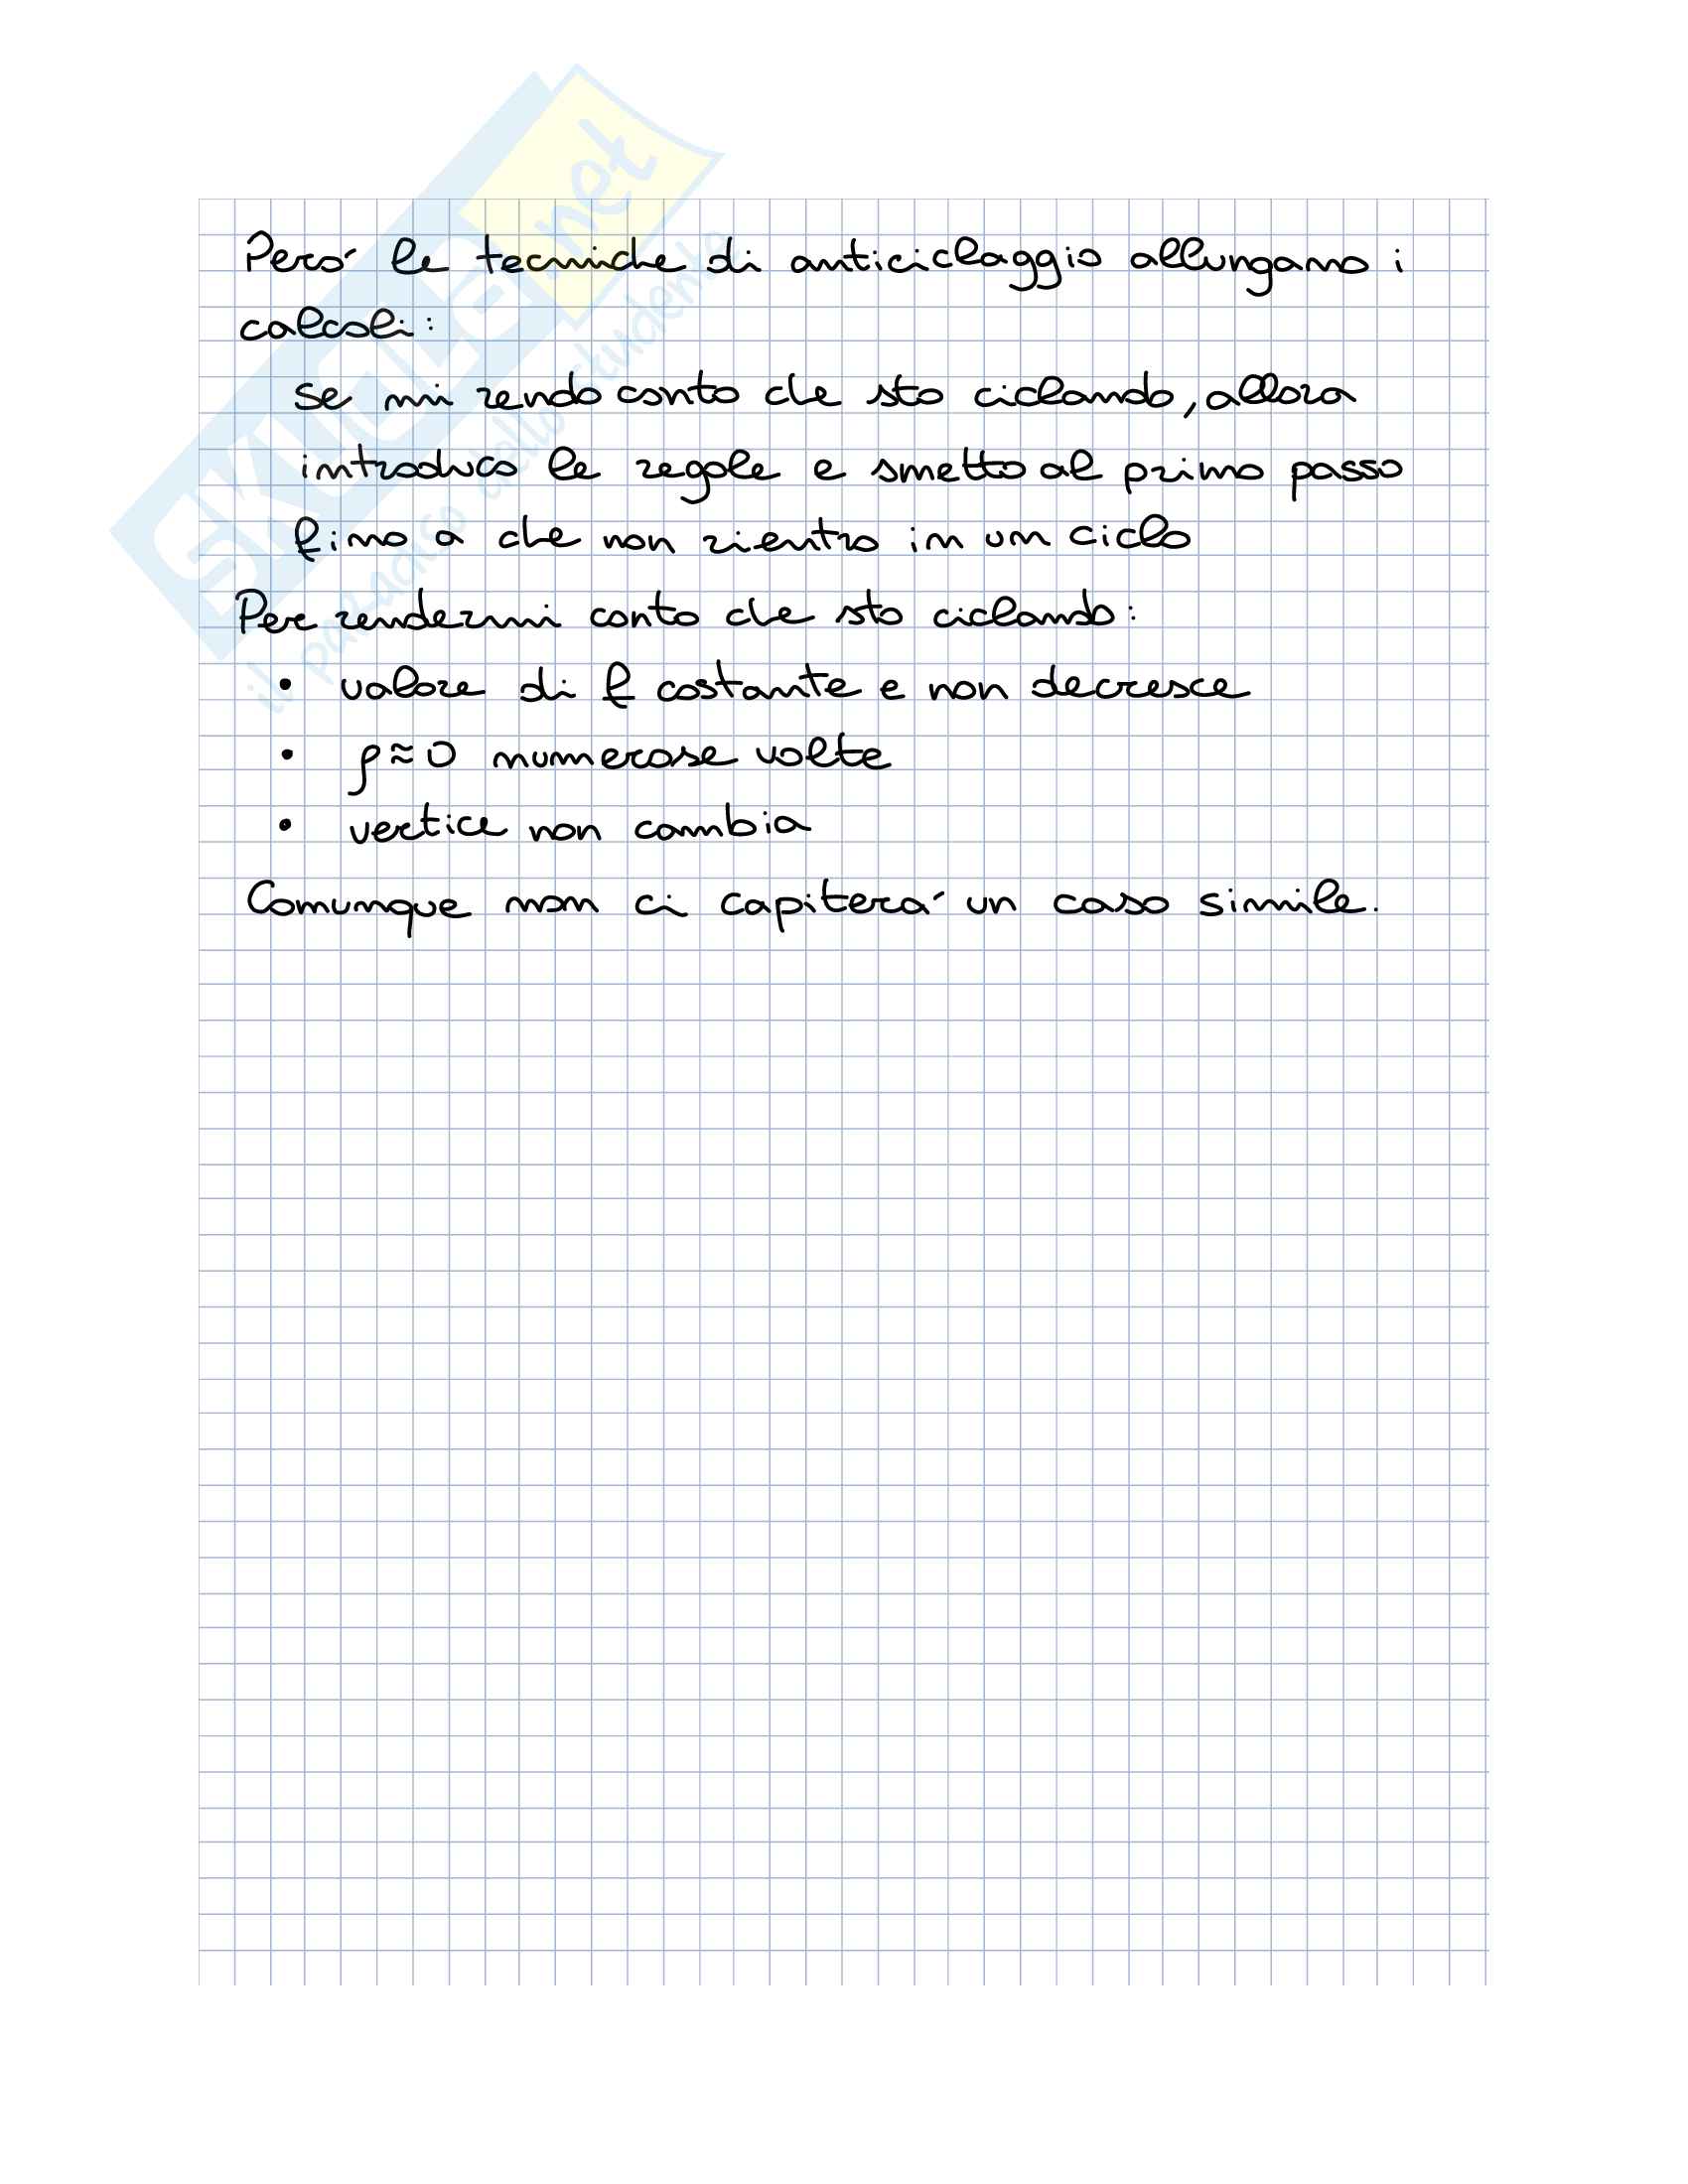 SKUOLA.net
il paradiso dello studente
Pero' le tecniche di anticiclaggio allungano i
calcoli:
se mi rendo conto che sto ciclando, allora
introduco le regole e smetto al primo passo
fino a che non rientro in un ciclo
Per rendermi conto che sto ciclando:
• valore di f costante e non decresce
• ρ≈0 numerose volte
• vertice non cambia
Comunque non ci capitera' un caso simile.